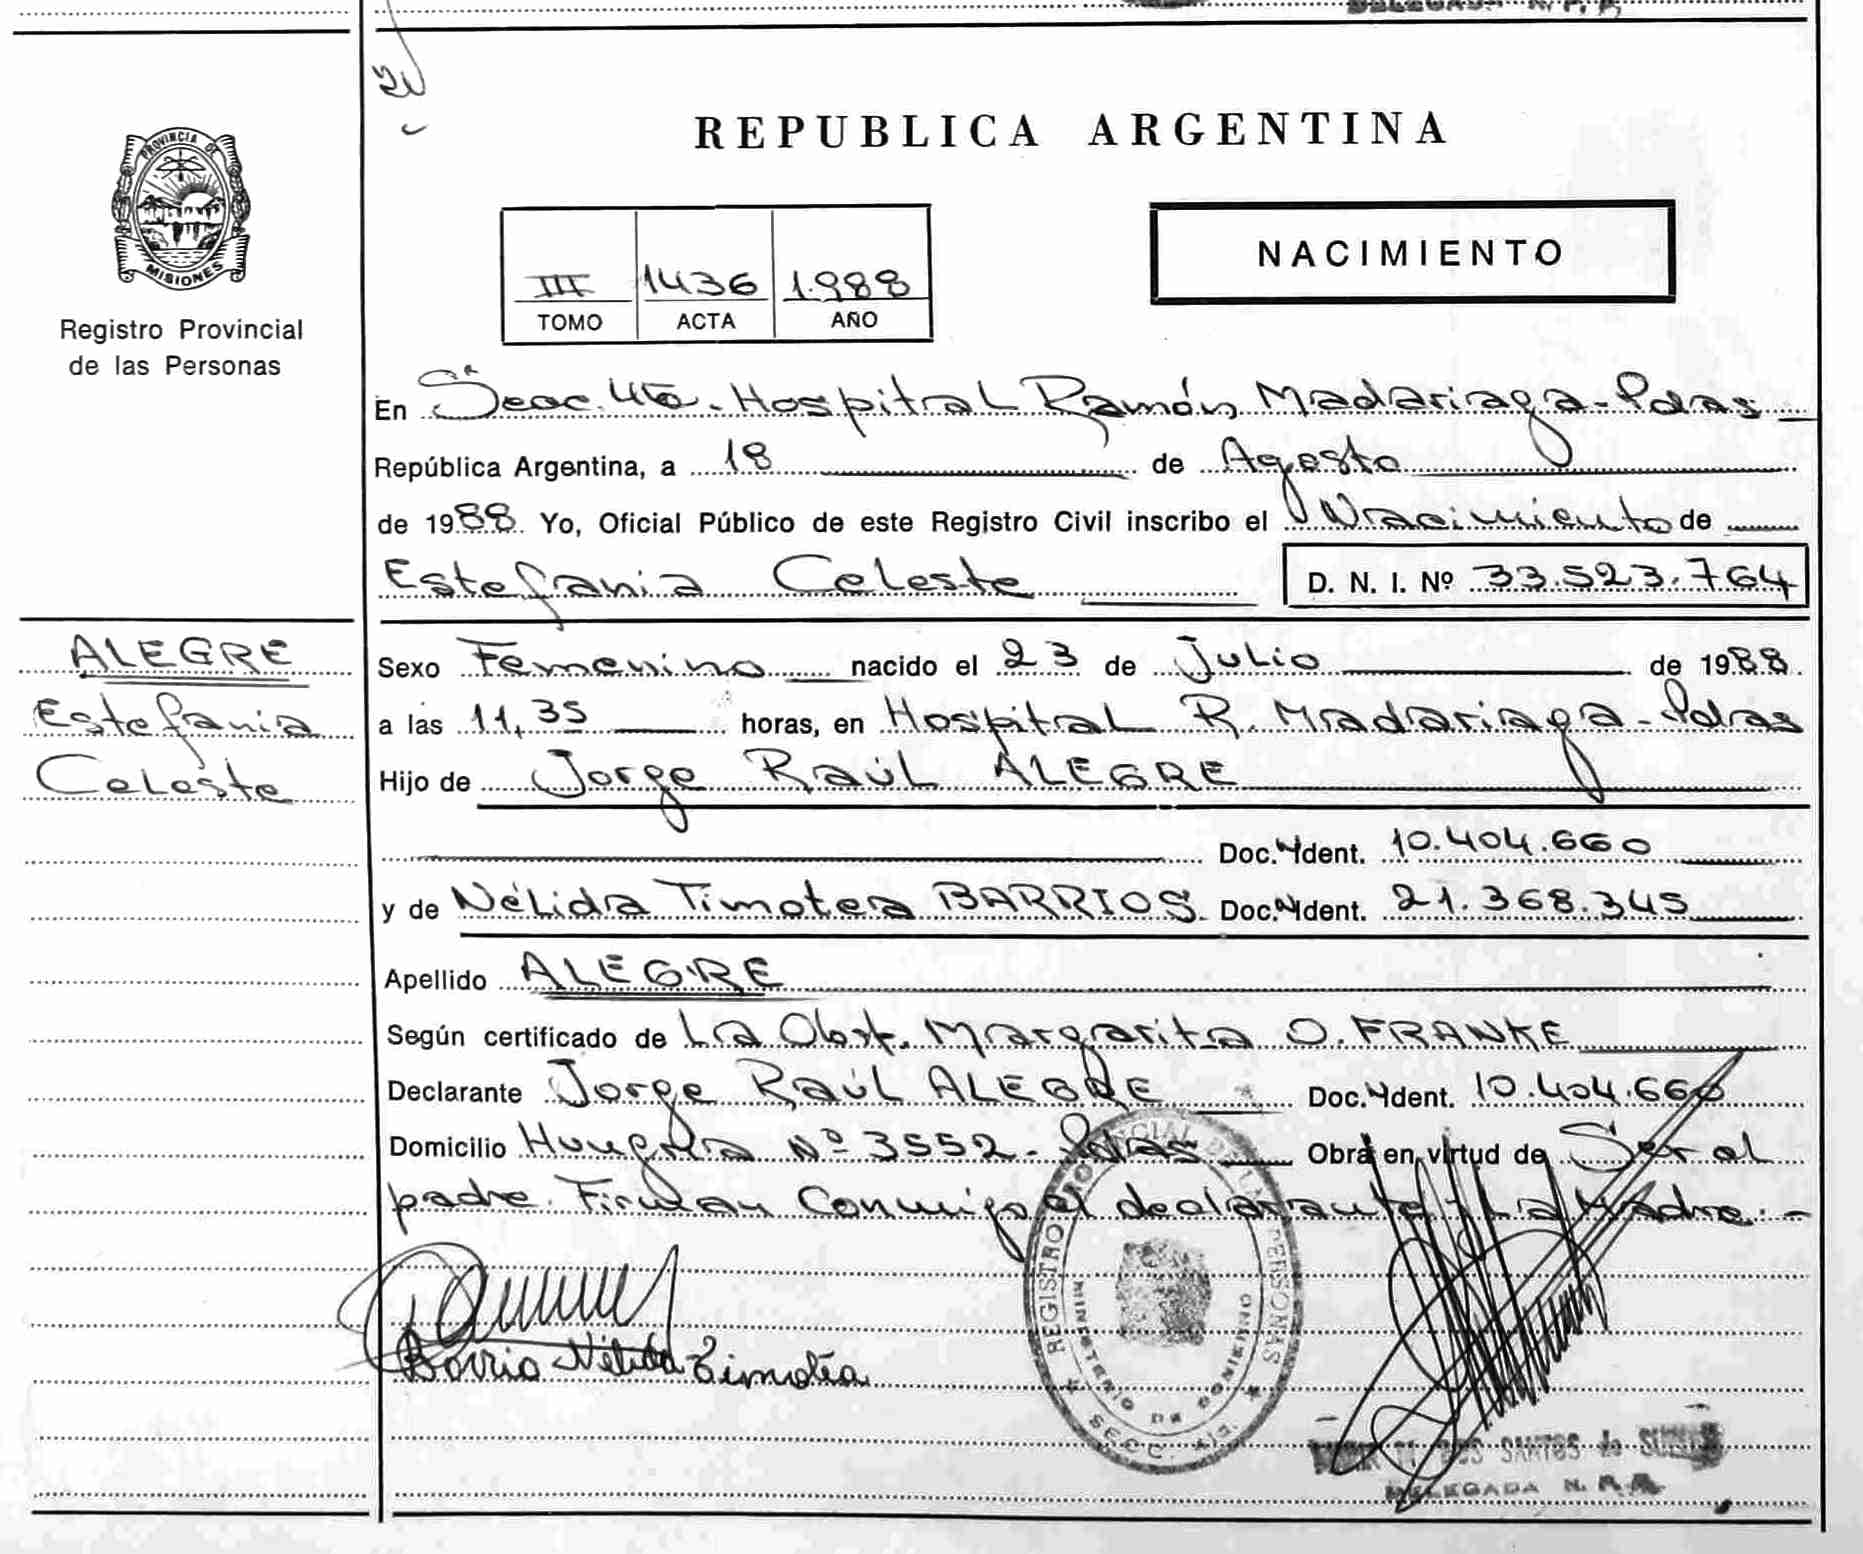 PROVINCIA DE
MISIONES
Registro Provincial
de las Personas
REPUBLICA ARGENTINA
NACIMIENTO
III 1436 1.988
TOMO ACTA AÑO
En Secc. 4ta. Hospital Ramón Madariaga - Pdas
República Argentina, a 18 de Agosto
de 1988. Yo, Oficial Público de este Registro Civil inscribo el Nacimiento de
Estefania Celeste D. N. I. Nº 33.523.764
ALEGRE
Estefania
Celeste
Sexo Femenino nacido el 23 de Julio de 1988.
a las 11,35 horas, en Hospital R. Madariaga - Pdas
Hijo de Jorge Raúl ALEGRE
Doc. Ident. 10.404.660
y de Nélida Timotea BARRIOS Doc. Ident. 21.368.345
Apellido ALEGRE
Según certificado de La Obst. Margarita O. FRANKE
Declarante Jorge Raúl ALEGRE Doc. Ident. 10.404.660
Domicilio Hungría Nº 3552 - Pdas Obra en virtud de Ser el
padre. Firman Conmigo el declarante y La Madre. -
Barrio Nélida Timotéa
REGISTRO PROVINCIAL DE LAS PERSONAS
MINISTERIO DE GOBIERNO
SECC. 4ta.
DOS SANTOS de
DELEGADA N. P. R.